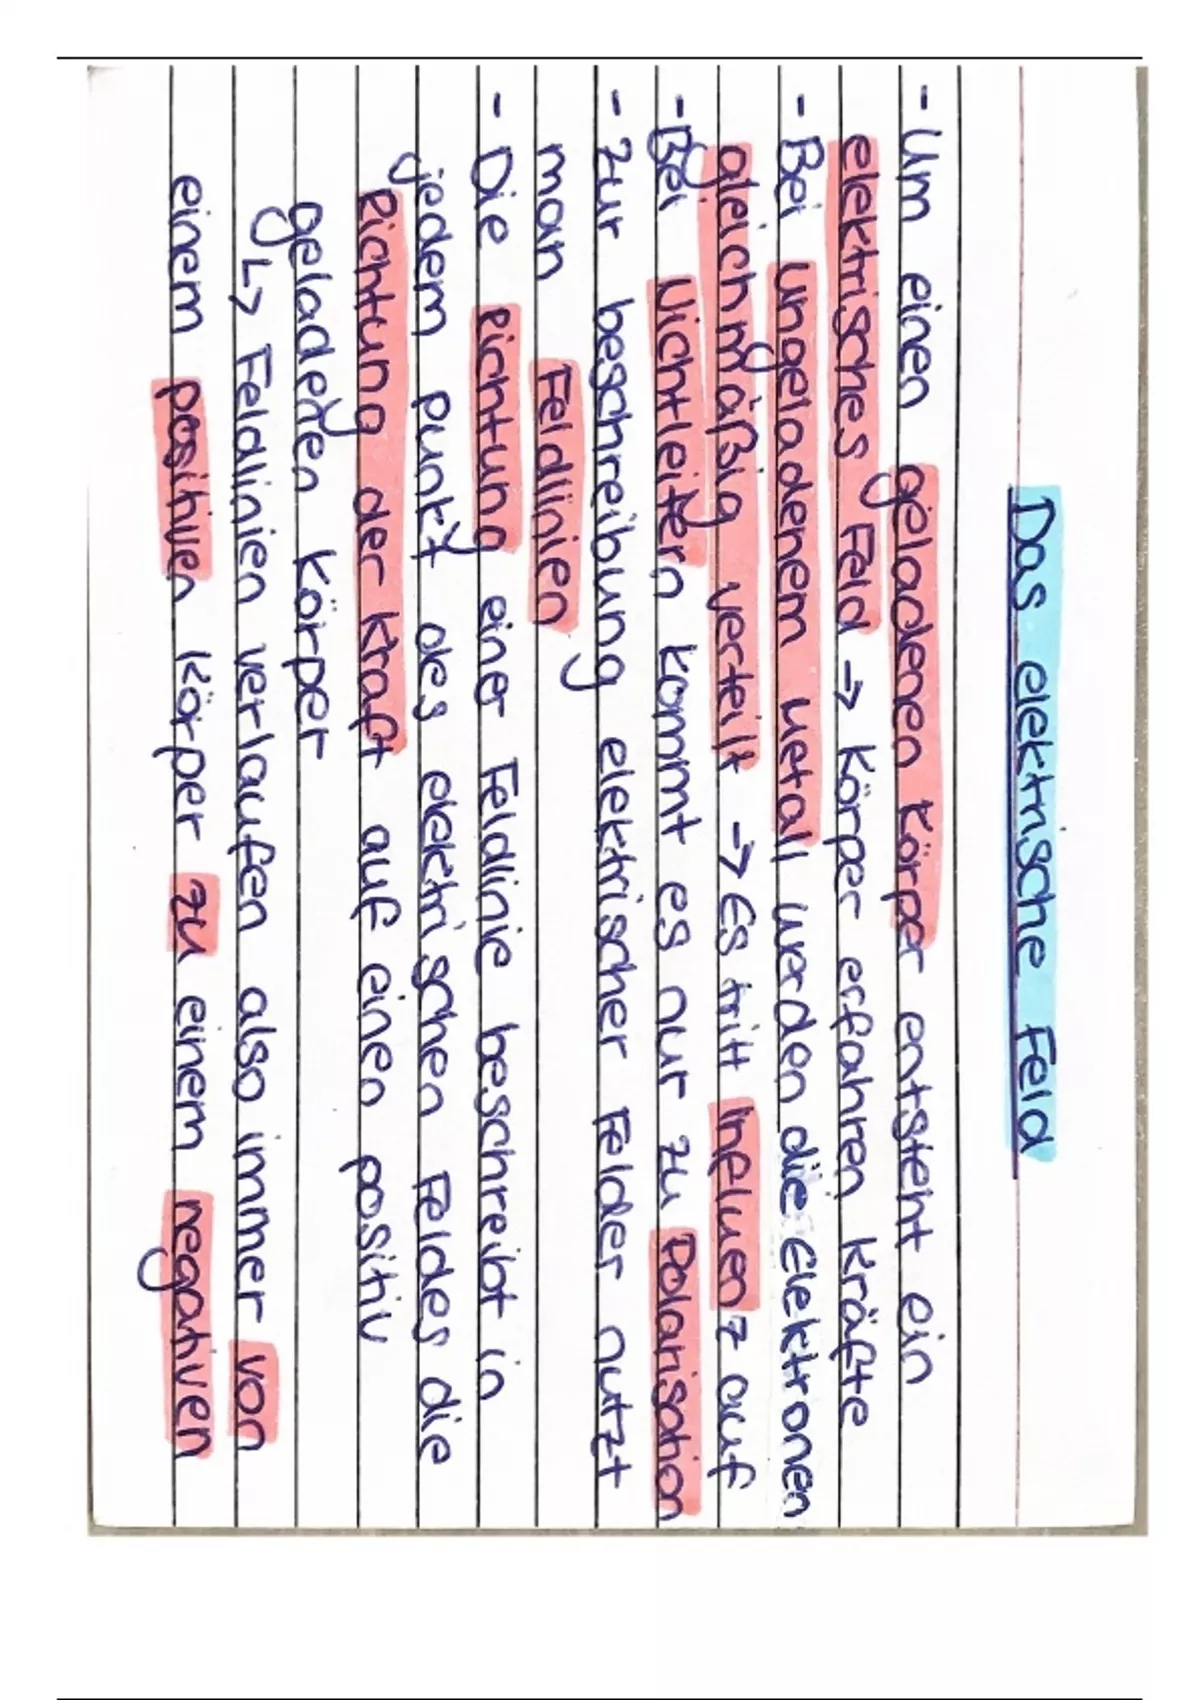 Das elektrische Feld
- Um einen geladenen Körper entsteht ein
elektrisches Feld → Körper erfahren Kräfte
- Bei ungeladenem Metall werden die Elektronen
gleichmäßig verteilt → Es tritt Influenz auf
- Bei Nichtleitern kommt es nur zu Polarisation
- Zur beschreibung elektrischer Felder nutzt
man Feldlinien
- Die Richtung einer Feldlinie beschreibt in
jedem punkt des elektrischen Feldes die
Richtung der Kraft auf einen positiv
geladenen Körper
↳ Feldlinien verlaufen also immer von
einem positiven Körper zu einem negativen